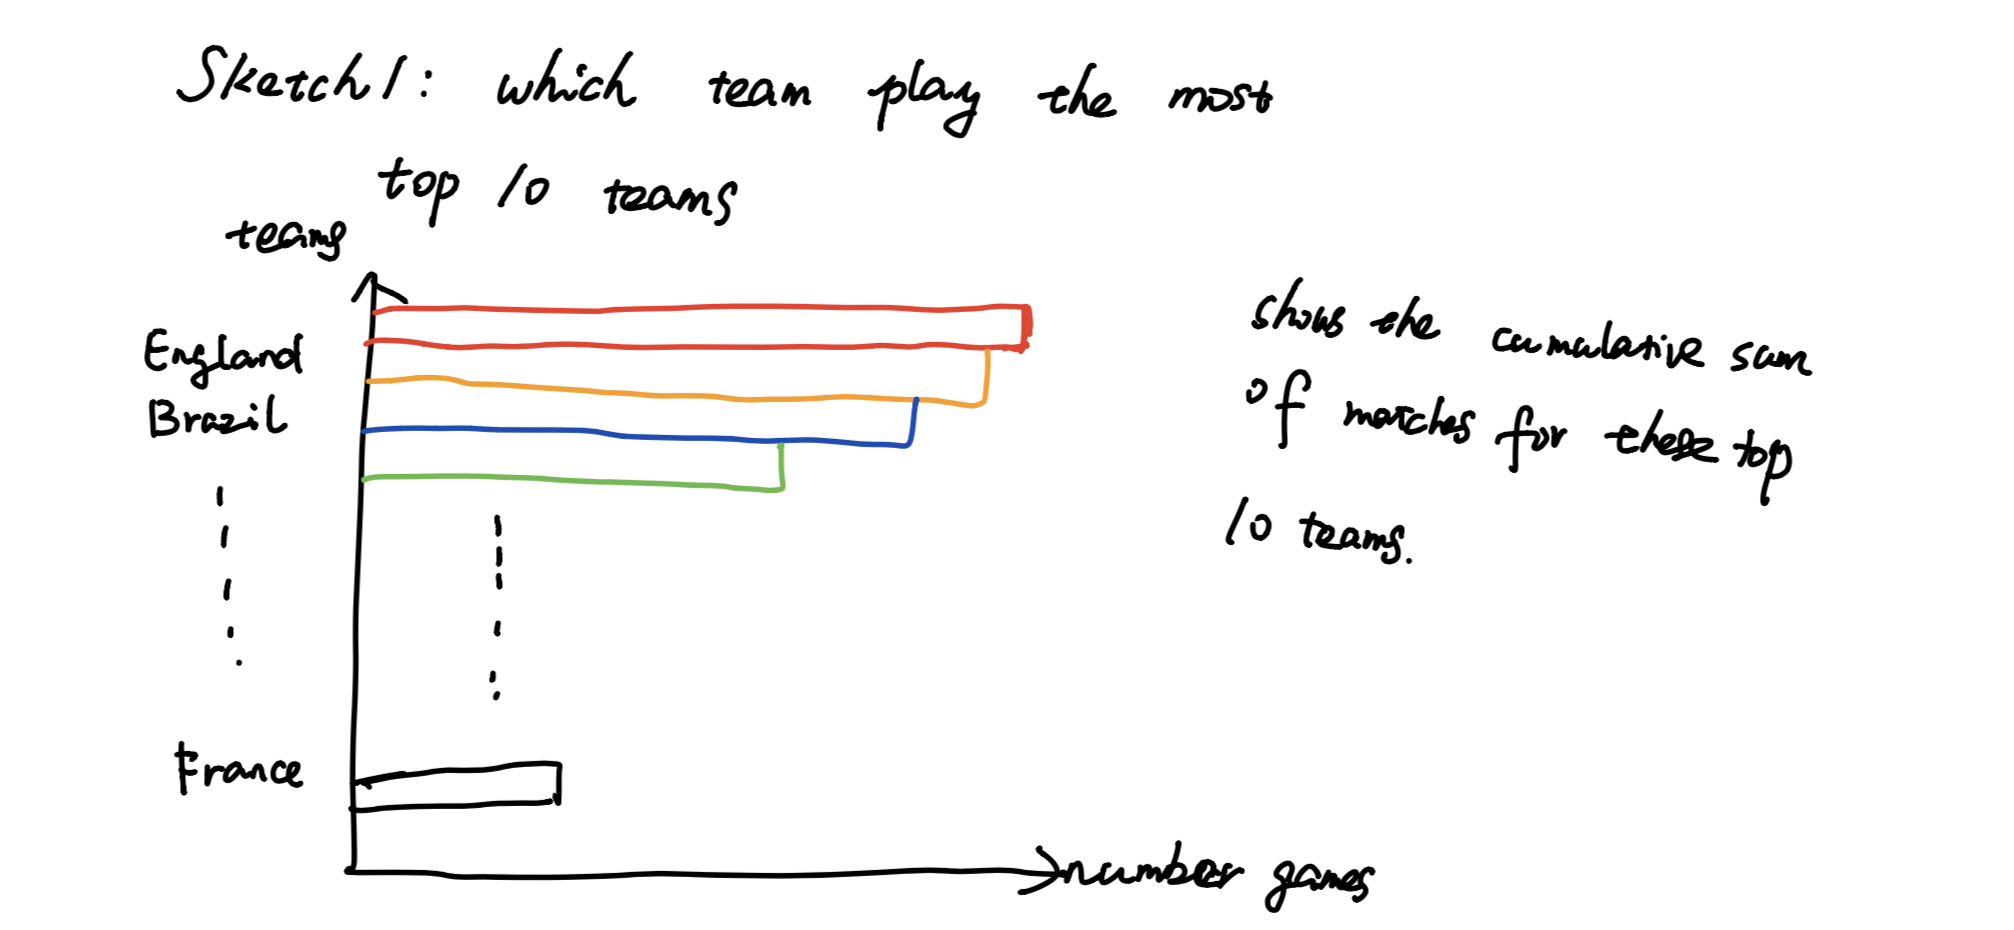 Sketch1: which team play the most
top 10 teams
teams
England
Brazil
France
number games
shows the cumulative sum
of matches for these top
10 teams.